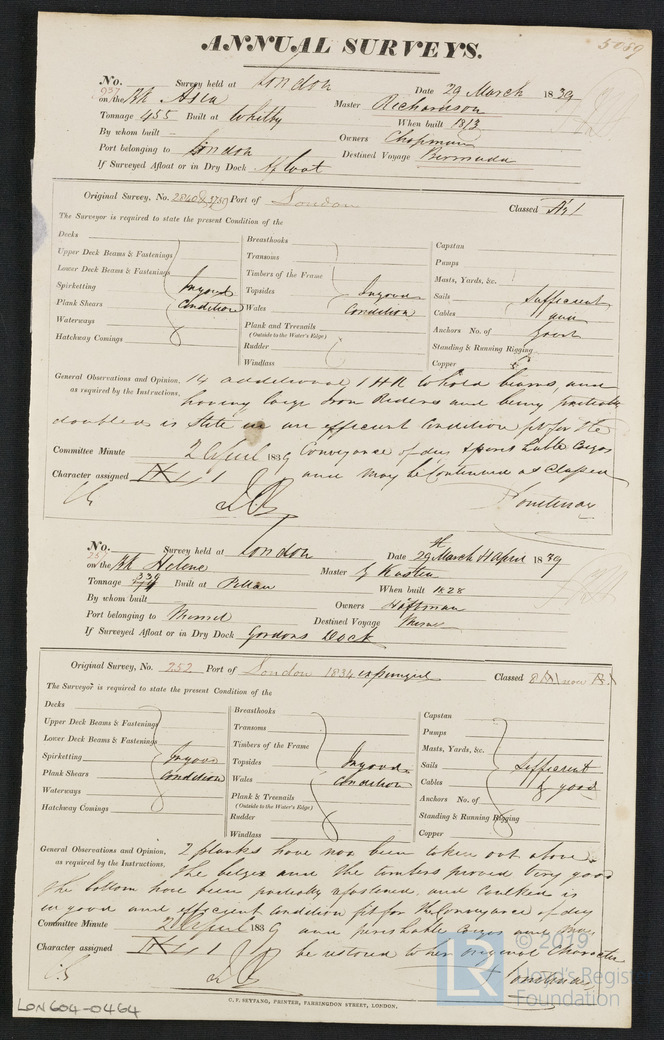 5059
ANNUAL SURVEYS.
No. 937 Survey held at London Date 29 March 1839
on the Bk Asia Master Richardson
Tonnage 455 Built at Whitby When built 1813
By whom built Owners Chapman
Port belonging to London Destined Voyage Bermuda
If Surveyed Afloat or in Dry Dock Afloat
Original Survey, No. 2840 & Port of London Classed Æ1
The Surveyor is required to state the present Condition of the
Decks
Upper Deck Beams & Fastenings
Lower Deck Beams & Fastenings
Spirketting In good
Plank Shears Condition
Waterways
Hatchway Comings
Breasthooks
Transoms
Timbers of the Frame
Topsides In good
Wales Condition
Plank and Treenails
(Outside to the Water's Edge)
Rudder
Windlass
Capstan
Pumps
Masts, Yards, &c.
Sails Sufficient
Cables and
Anchors No. of Good
Standing & Running Rigging
Copper
General Observations and Opinion, 14 additional to hold beams, and
as required by the Instructions. having large Iron Riders and being partially
doubled is in an efficient Condition fit for the
Committee Minute 2 April 1839 Conveyance of dry & perishable Cargo
Character assigned Æ 1 and may be Continued as Classed
No. 257 Survey held at London Date 29th March 4 April 1839
on the Bk Helene Master
Tonnage 339 Built at Pillau When built 1828
By whom built Owners Hoffman
Port belonging to Memel Destined Voyage
If Surveyed Afloat or in Dry Dock Gordons Dock
Original Survey, No. 252 Port of London 1834 expunged Classed now
The Surveyor is required to state the present Condition of the
Decks
Upper Deck Beams & Fastenings
Lower Deck Beams & Fastenings
Spirketting In good
Plank Shears Condition
Waterways
Hatchway Comings
Breasthooks
Transoms
Timbers of the Frame
Topsides In good
Wales Condition
Plank & Treenails
(Outside to the Water's Edge)
Rudder
Windlass
Capstan
Pumps
Masts, Yards, &c.
Sails Sufficient
Cables & good
Anchors No. of
Standing & Running Rigging
Copper
General Observations and Opinion, 2 planks have now been taken out above
as required by the Instructions. the belges and the timbers proved very good
The bottom have been partially refastened and Caulked is
in good and efficient Condition fit for the Conveyance of dry
Committee Minute 2 April 1839 and perishable Cargo and may
Character assigned Æ 1 be restored to her original Character
C. F. SEYFANG, PRINTER, FARRINGDON STREET, LONDON.
LON604-0464
LR © 2019
Lloyd's Register
Foundation